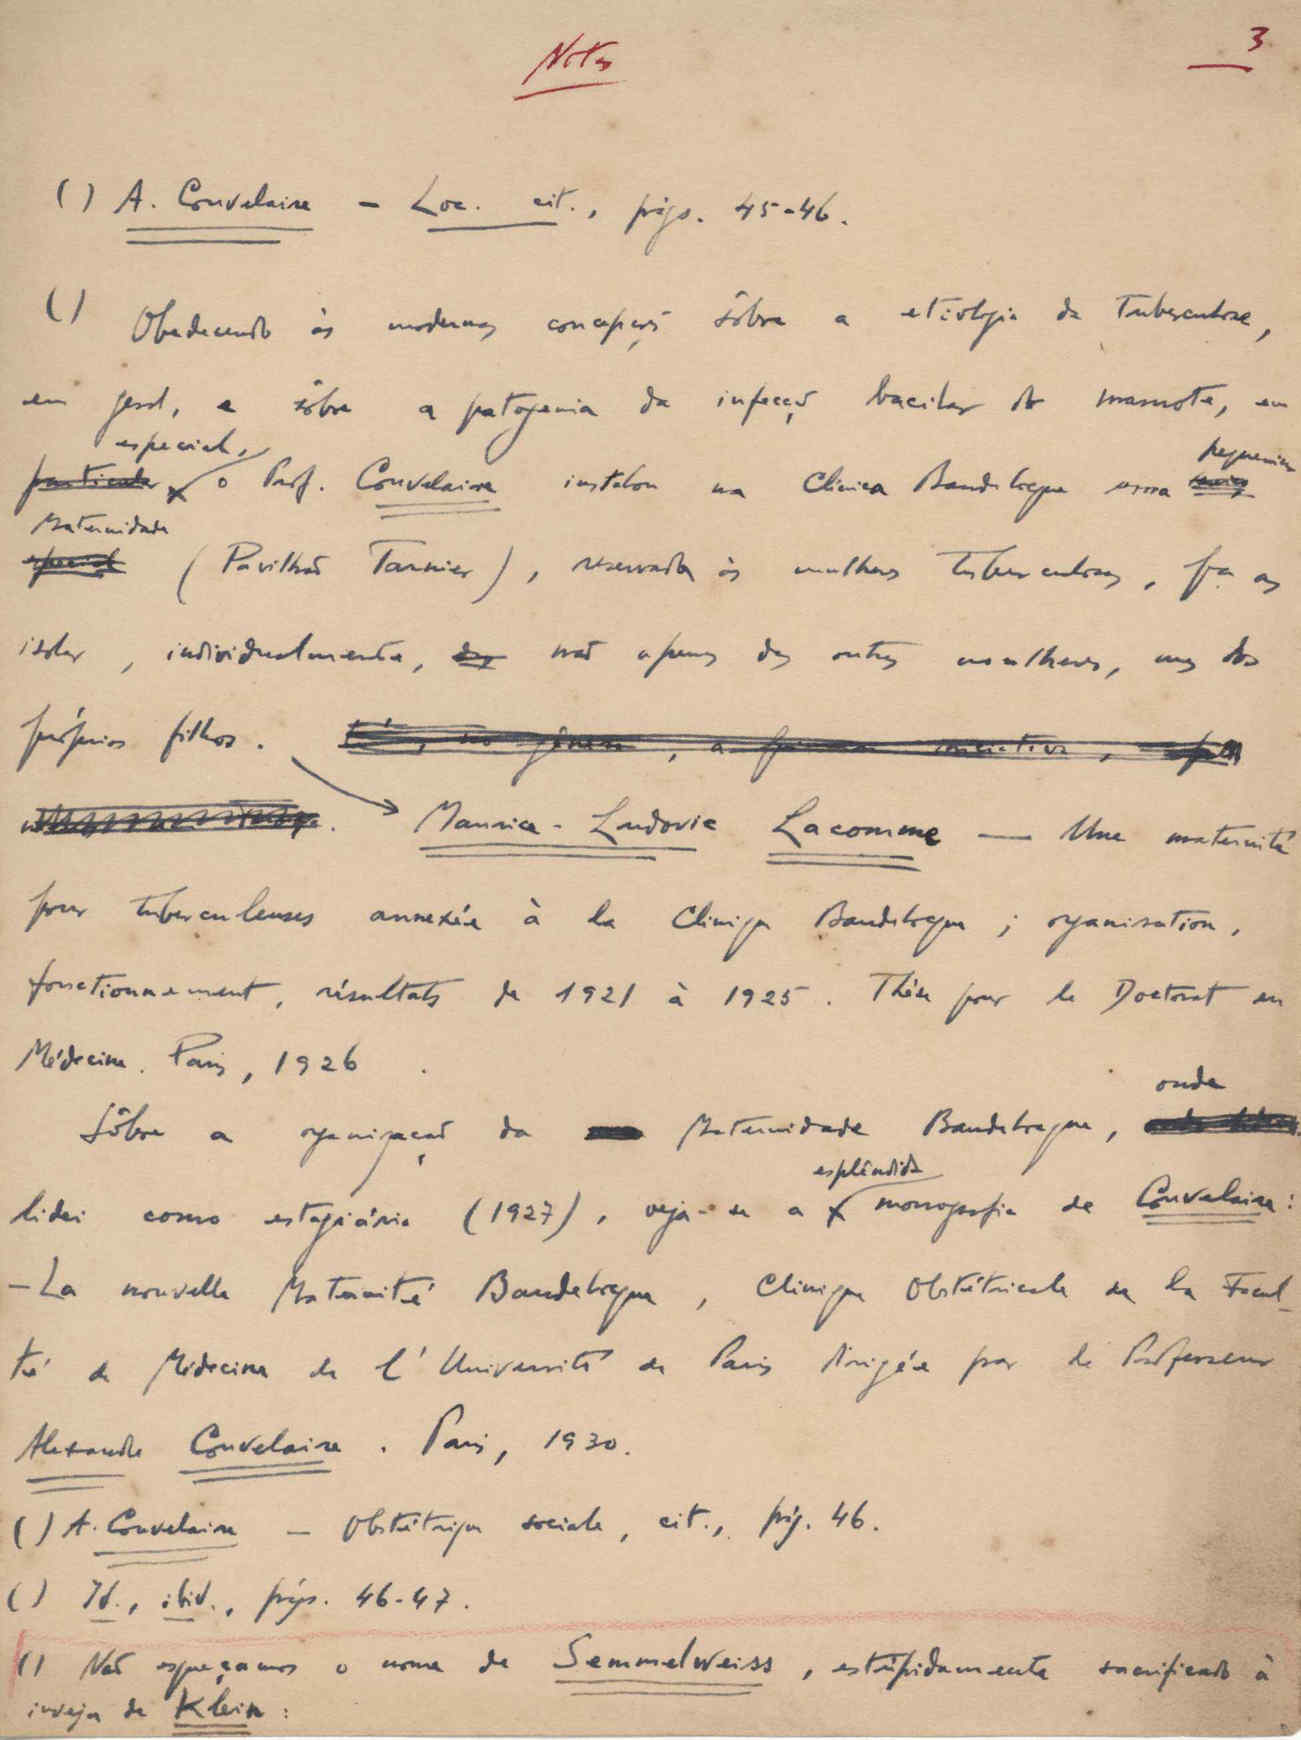 Notas
3
() A. Couvelaire - Loc. cit., págs. 45-46.
() Obedecendo às modernas concepções sôbre a etiologia da Tuberculose,
em geral, e sôbre a patogenia da infecção bacilar do mamote, em
especial,
particular o Prof. Couvelaire instalou na Clínica Baudelocque uma
pequenina
Maternidade
especial (Pavilhão Tarnier), reservada às mulheres tuberculosas, pa as
isolar, individualmente, das não apenas das outras mulheres, mas dos
próprios filhos. É, no género, a primeira iniciativa,
Maurice-Ludovic Lacomme — Une maternité
pour tuberculeuses annexée à la Clinique Baudelocque ; organisation,
fonctionnement, résultats de 1921 à 1925. Thèse pour le Doctorat en
Médecine. Paris, 1926.
Sôbre a organização da Maternidade Baudelocque,
onde
esplêndida
lidei como estagiário (1927), veja-se a monografia de Couvelaire:
- La nouvelle Maternité Baudelocque, Clinique Obstétricale de la Facul-
té de Médecine de l'Université de Paris dirigée par le Professeur
Alexandre Couvelaire. Paris, 1930.
() A. Couvelaire - Obstétrique sociale, cit., pág. 46.
() Id., ibid., págs. 46-47.
() Não esqueçamos o nome de Semmelweiss, estùpidamente sacrificado à
inveja de Klein: